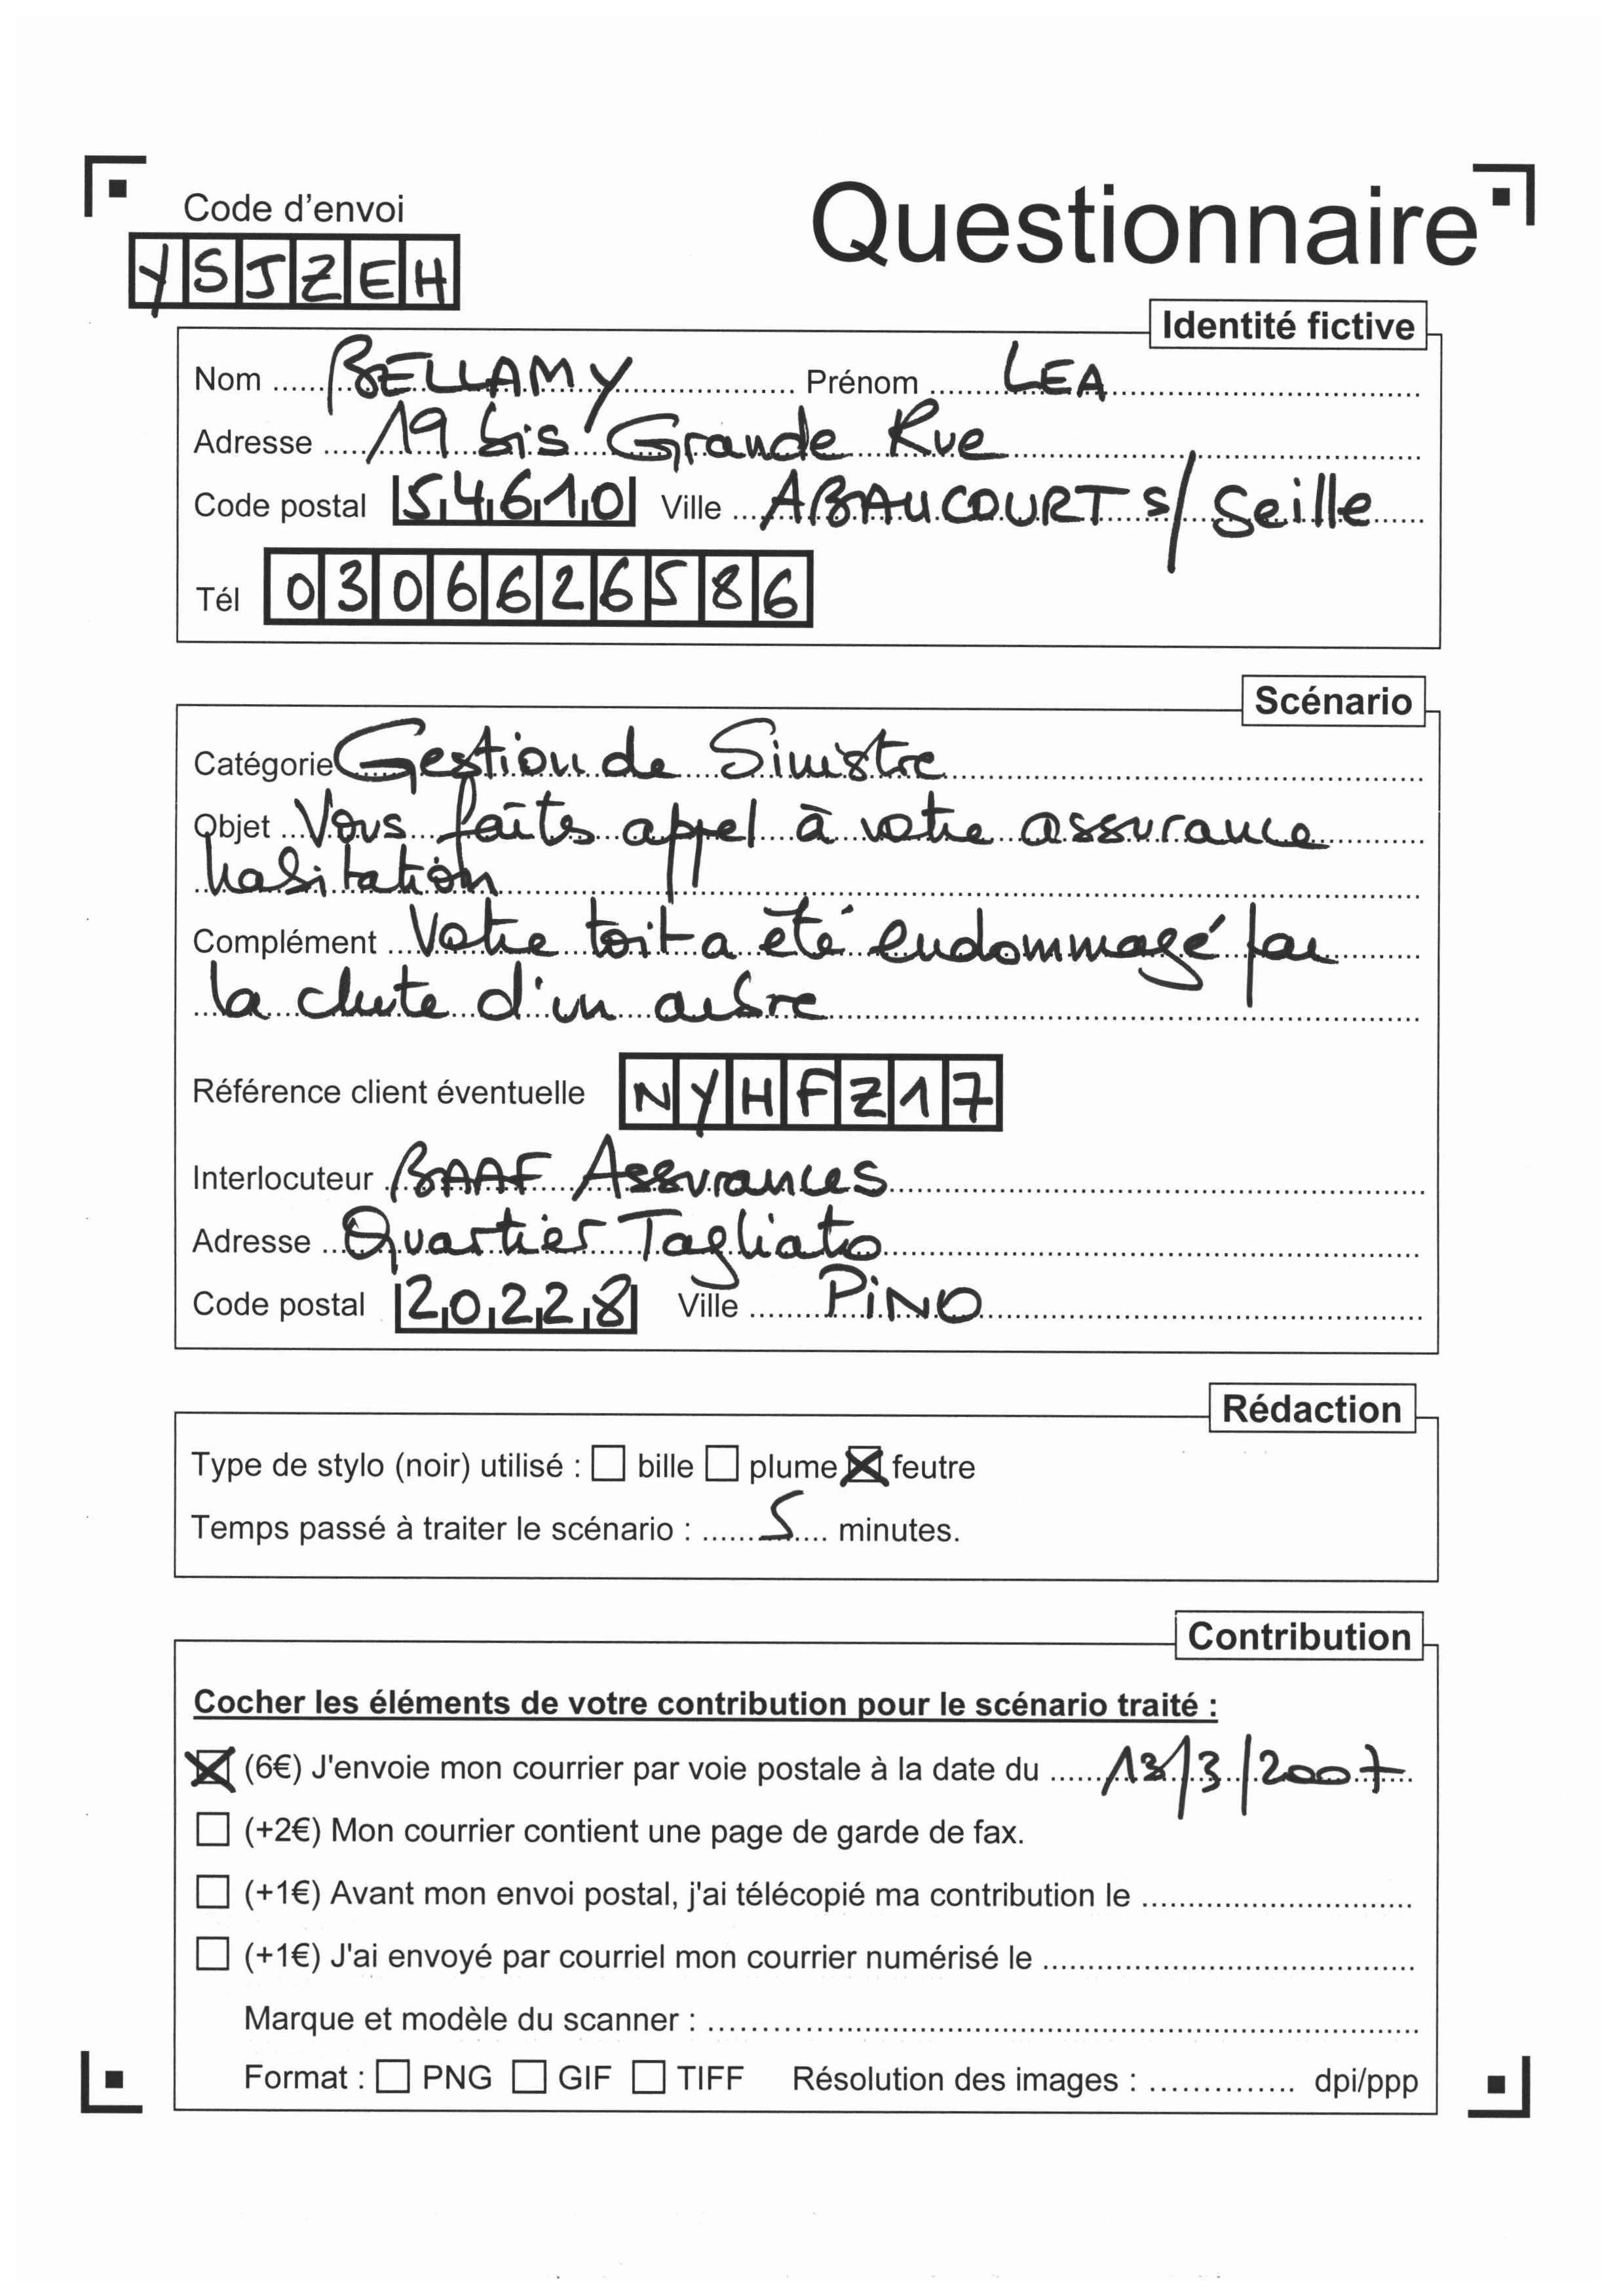 Code d'envoi
YSJZEH
Questionnaire
Identité fictive
Nom BELLAMY Prénom LEA
Adresse 19 bis Grande Rue
Code postal 54610 Ville ABAUCOURT s/ Seille
Tél 0306626586
Scénario
Catégorie Gestion de Sinistre
Objet Vous faîtes appel à votre assurance
habitation
Complément Votre toit a été endommagé par
la chute d'un arbre
Référence client éventuelle NYHFZ17
Interlocuteur BAAF Assurances
Adresse Quartier Tagliato
Code postal 20228 Ville PiNO
Rédaction
Type de stylo (noir) utilisé : bille plume feutre
Temps passé à traiter le scénario : 5 minutes.
Contribution
Cocher les éléments de votre contribution pour le scénario traité :
(6€) J'envoie mon courrier par voie postale à la date du 13/3/2007
(+2€) Mon courrier contient une page de garde de fax.
(+1€) Avant mon envoi postal, j'ai télécopié ma contribution le
(+1€) J'ai envoyé par courriel mon courrier numérisé le
Marque et modèle du scanner :
Format : PNG GIF TIFF Résolution des images : dpi/ppp